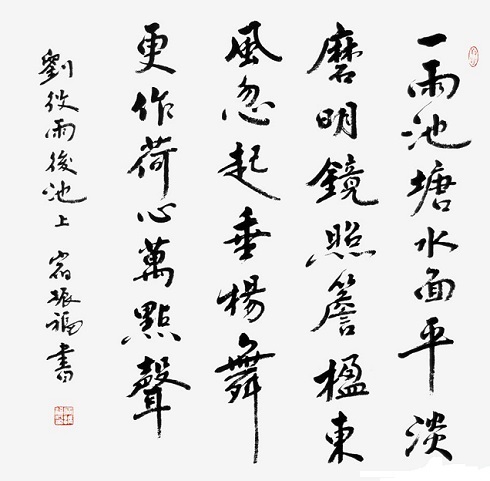 一雨池塘水面平淡
磨明鏡照簷楹東
風忽起垂楊舞
更作荷心萬點聲
劉攽雨後池上 振福書